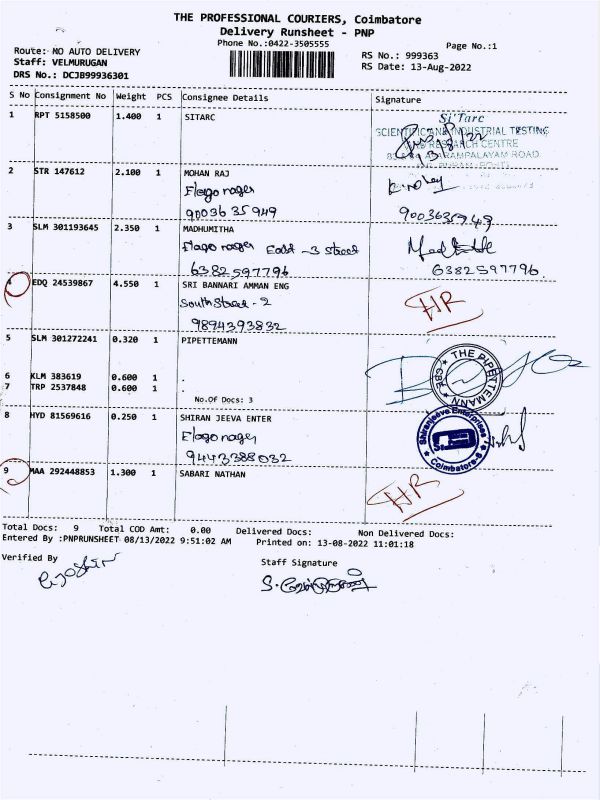 THE PROFESSIONAL COURIERS, Coimbatore
Delivery Runsheet - PNP
Phone No.:0422-3505555
Page No.:1
Route: NO AUTO DELIVERY
RS No.: 999363
Staff: VELMURUGAN
RS Date: 13-Aug-2022
DRS No.: DCJB99936301
S No Consignment No Weight PCS Consignee Details Signature
1 RPT 5158500 1.400 1 SITARC
Si'Tarc
SCIENTIFIC AND INDUSTRIAL TESTING
AND RESEARCH CENTRE
AVARAMPALAYAM ROAD
2 STR 147612 2.100 1 MOHAN RAJ
Elago nager
9003635949 9003635949
3 SLM 301193645 2.350 1 MADHUMITHA
Elago nager East -3 street
6382597796 6382597796
4 EDQ 24539867 4.550 1 SRI BANNARI AMMAN ENG
South Street - 2 HR
9894393832
5 SLM 301272241 0.320 1 PIPETTEMANN
THE PIPETTEMANN CBE
6 KLM 383619 0.600 1 .
7 TRP 2537848 0.600 1 .
No.Of Docs: 3
8 HYD 81569616 0.250 1 SHIRAN JEEVA ENTER
Shiranjeeva Enterprises
Elago nager
Coimbatore-6
9443388032
9 MAA 292448853 1.300 1 SABARI NATHAN
HR
Total Docs: 9 Total COD Amt: 0.00 Delivered Docs: Non Delivered Docs:
Entered By :PNPRUNSHEET 08/13/2022 9:51:02 AM Printed on: 13-08-2022 11:01:18
Verified By Staff Signature